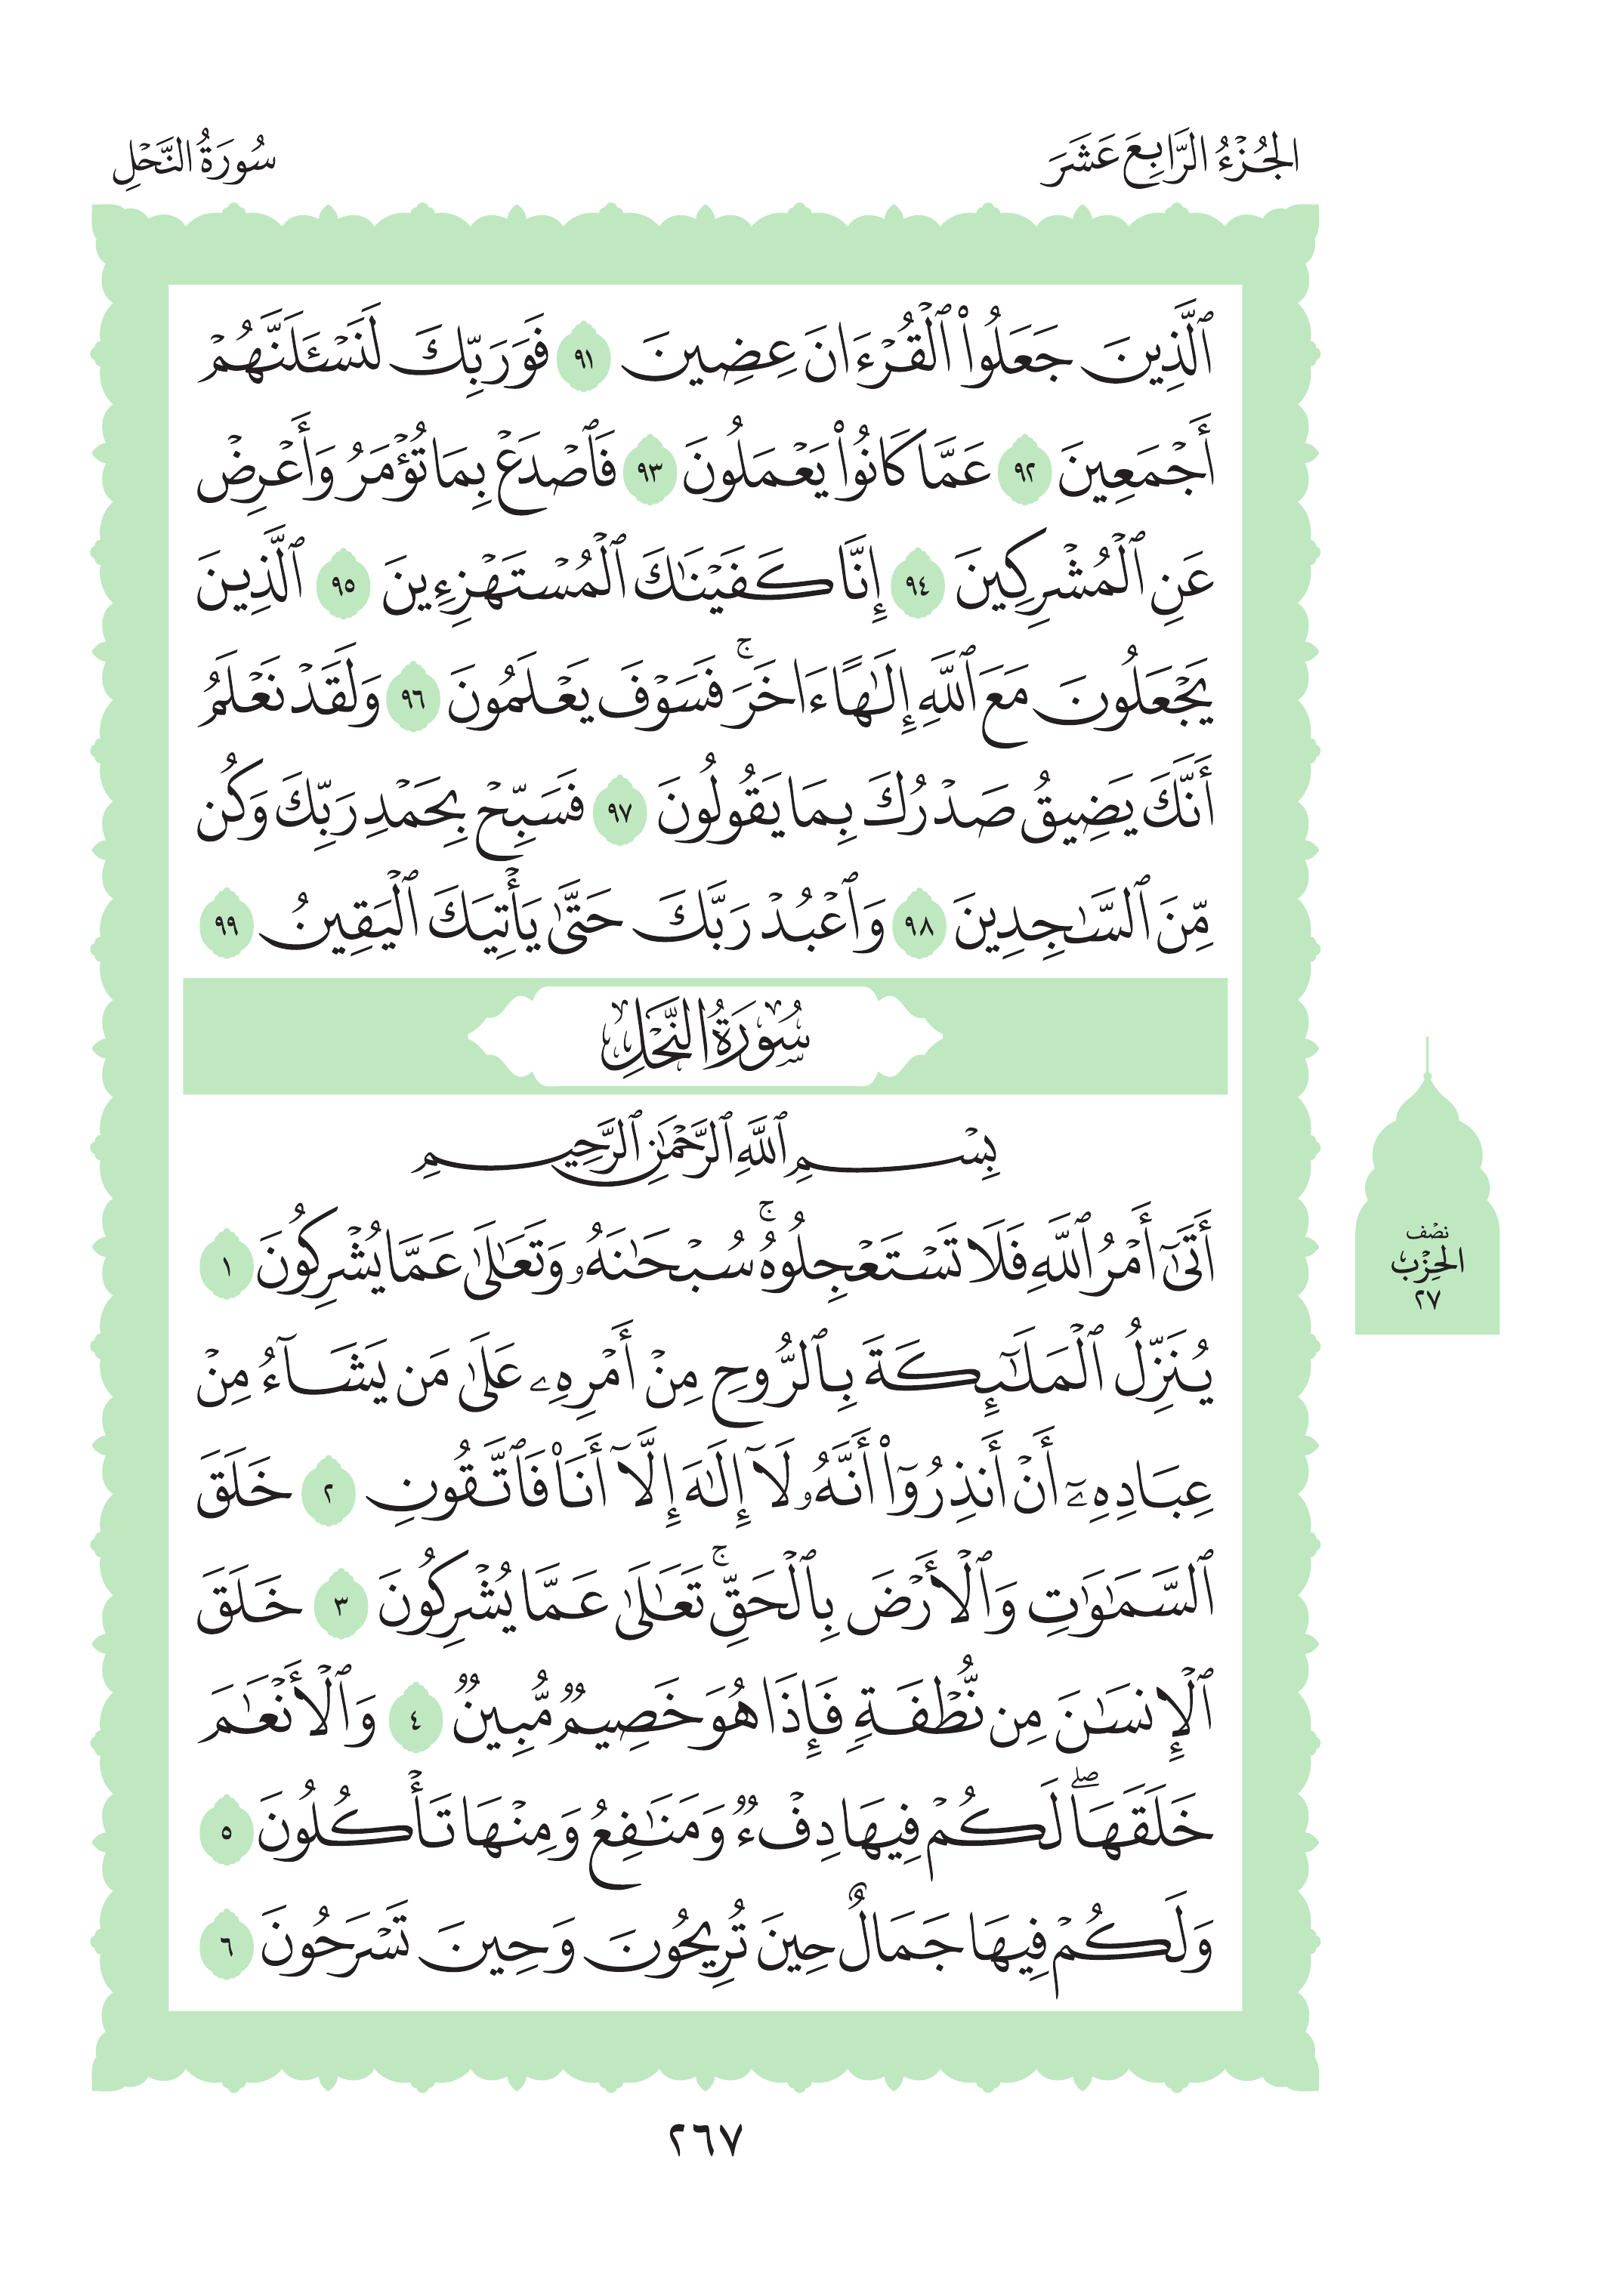 الجُزْءُ الرَّابِعَ عَشَرَ
سُورَةُ النَّحْلِ
ٱلَّذِينَ جَعَلُوا۟ ٱلْقُرْءَانَ عِضِينَ ٩١ فَوَرَبِّكَ لَنَسْـَٔلَنَّهُمْ
أَجْمَعِينَ ٩٢ عَمَّا كَانُوا۟ يَعْمَلُونَ ٩٣ فَٱصْدَعْ بِمَا تُؤْمَرُ وَأَعْرِضْ
عَنِ ٱلْمُشْرِكِينَ ٩٤ إِنَّا كَفَيْنَـٰكَ ٱلْمُسْتَهْزِءِينَ ٩٥ ٱلَّذِينَ
يَجْعَلُونَ مَعَ ٱللَّهِ إِلَـٰهًا ءَاخَرَ ۚ فَسَوْفَ يَعْلَمُونَ ٩٦ وَلَقَدْ نَعْلَمُ
أَنَّكَ يَضِيقُ صَدْرُكَ بِمَا يَقُولُونَ ٩٧ فَسَبِّحْ بِحَمْدِ رَبِّكَ وَكُن
مِّنَ ٱلسَّـٰجِدِينَ ٩٨ وَٱعْبُدْ رَبَّكَ حَتَّىٰ يَأْتِيَكَ ٱلْيَقِينُ ٩٩
سُورَةُ النَّحْلِ
بِسْمِ ٱللَّهِ ٱلرَّحْمَـٰنِ ٱلرَّحِيمِ
أَتَىٰٓ أَمْرُ ٱللَّهِ فَلَا تَسْتَعْجِلُوهُ ۚ سُبْحَـٰنَهُۥ وَتَعَـٰلَىٰ عَمَّا يُشْرِكُونَ ١
يُنَزِّلُ ٱلْمَلَـٰٓئِكَةَ بِٱلرُّوحِ مِنْ أَمْرِهِۦ عَلَىٰ مَن يَشَآءُ مِنْ
عِبَادِهِۦٓ أَنْ أَنذِرُوٓا۟ أَنَّهُۥ لَآ إِلَـٰهَ إِلَّآ أَنَا۠ فَٱتَّقُونِ ٢ خَلَقَ
ٱلسَّمَـٰوَٰتِ وَٱلْأَرْضَ بِٱلْحَقِّ ۚ تَعَـٰلَىٰ عَمَّا يُشْرِكُونَ ٣ خَلَقَ
ٱلْإِنسَـٰنَ مِن نُّطْفَةٍ فَإِذَا هُوَ خَصِيمٌ مُّبِينٌ ٤ وَٱلْأَنْعَـٰمَ
خَلَقَهَا ۖ لَكُمْ فِيهَا دِفْءٌ وَمَنَـٰفِعُ وَمِنْهَا تَأْكُلُونَ ٥
وَلَكُمْ فِيهَا جَمَالٌ حِينَ تُرِيحُونَ وَحِينَ تَسْرَحُونَ ٦
نصْف
الحِزْب
٢٧
٢٦٧